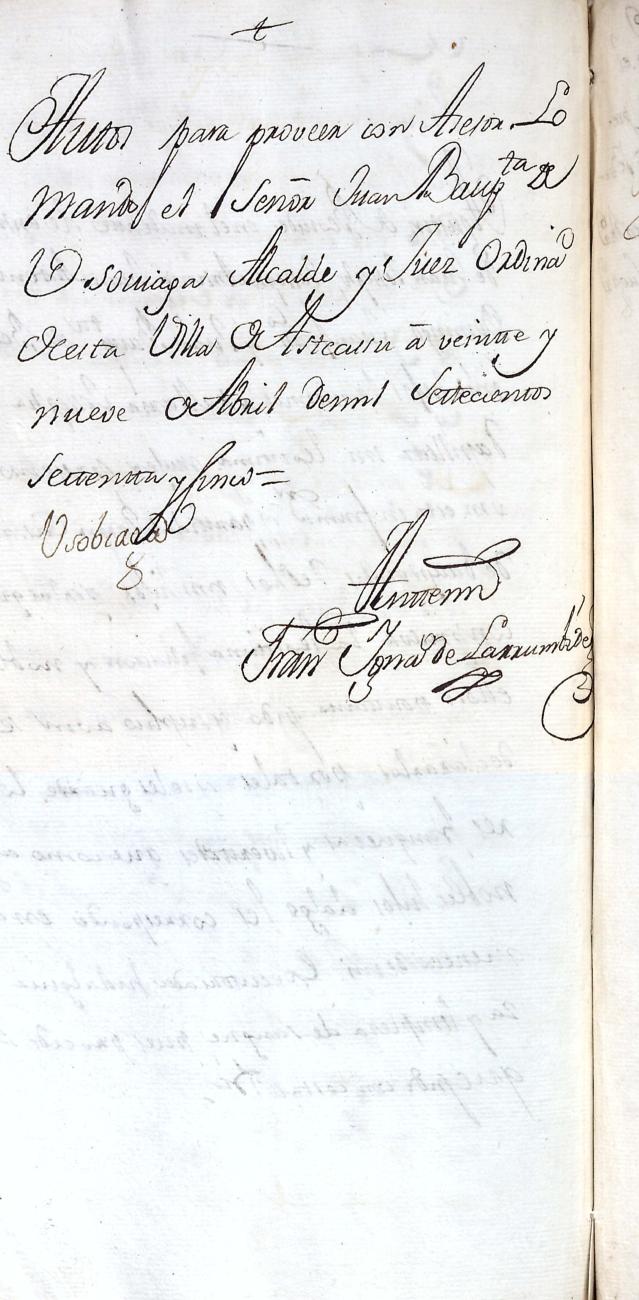 t
Autos para proveer con Asesor. Lo
Mando el Señor Juan Baup.ta de
Usoviaga Alcalde y Juez Ordin.o
de esta Villa de Asteasu â veintte y
nueve de Abril de mil Settecientos
Settentta y Sinco =
Usobiaga
Antte mi
Fran.co Ign.o de Larrumbide